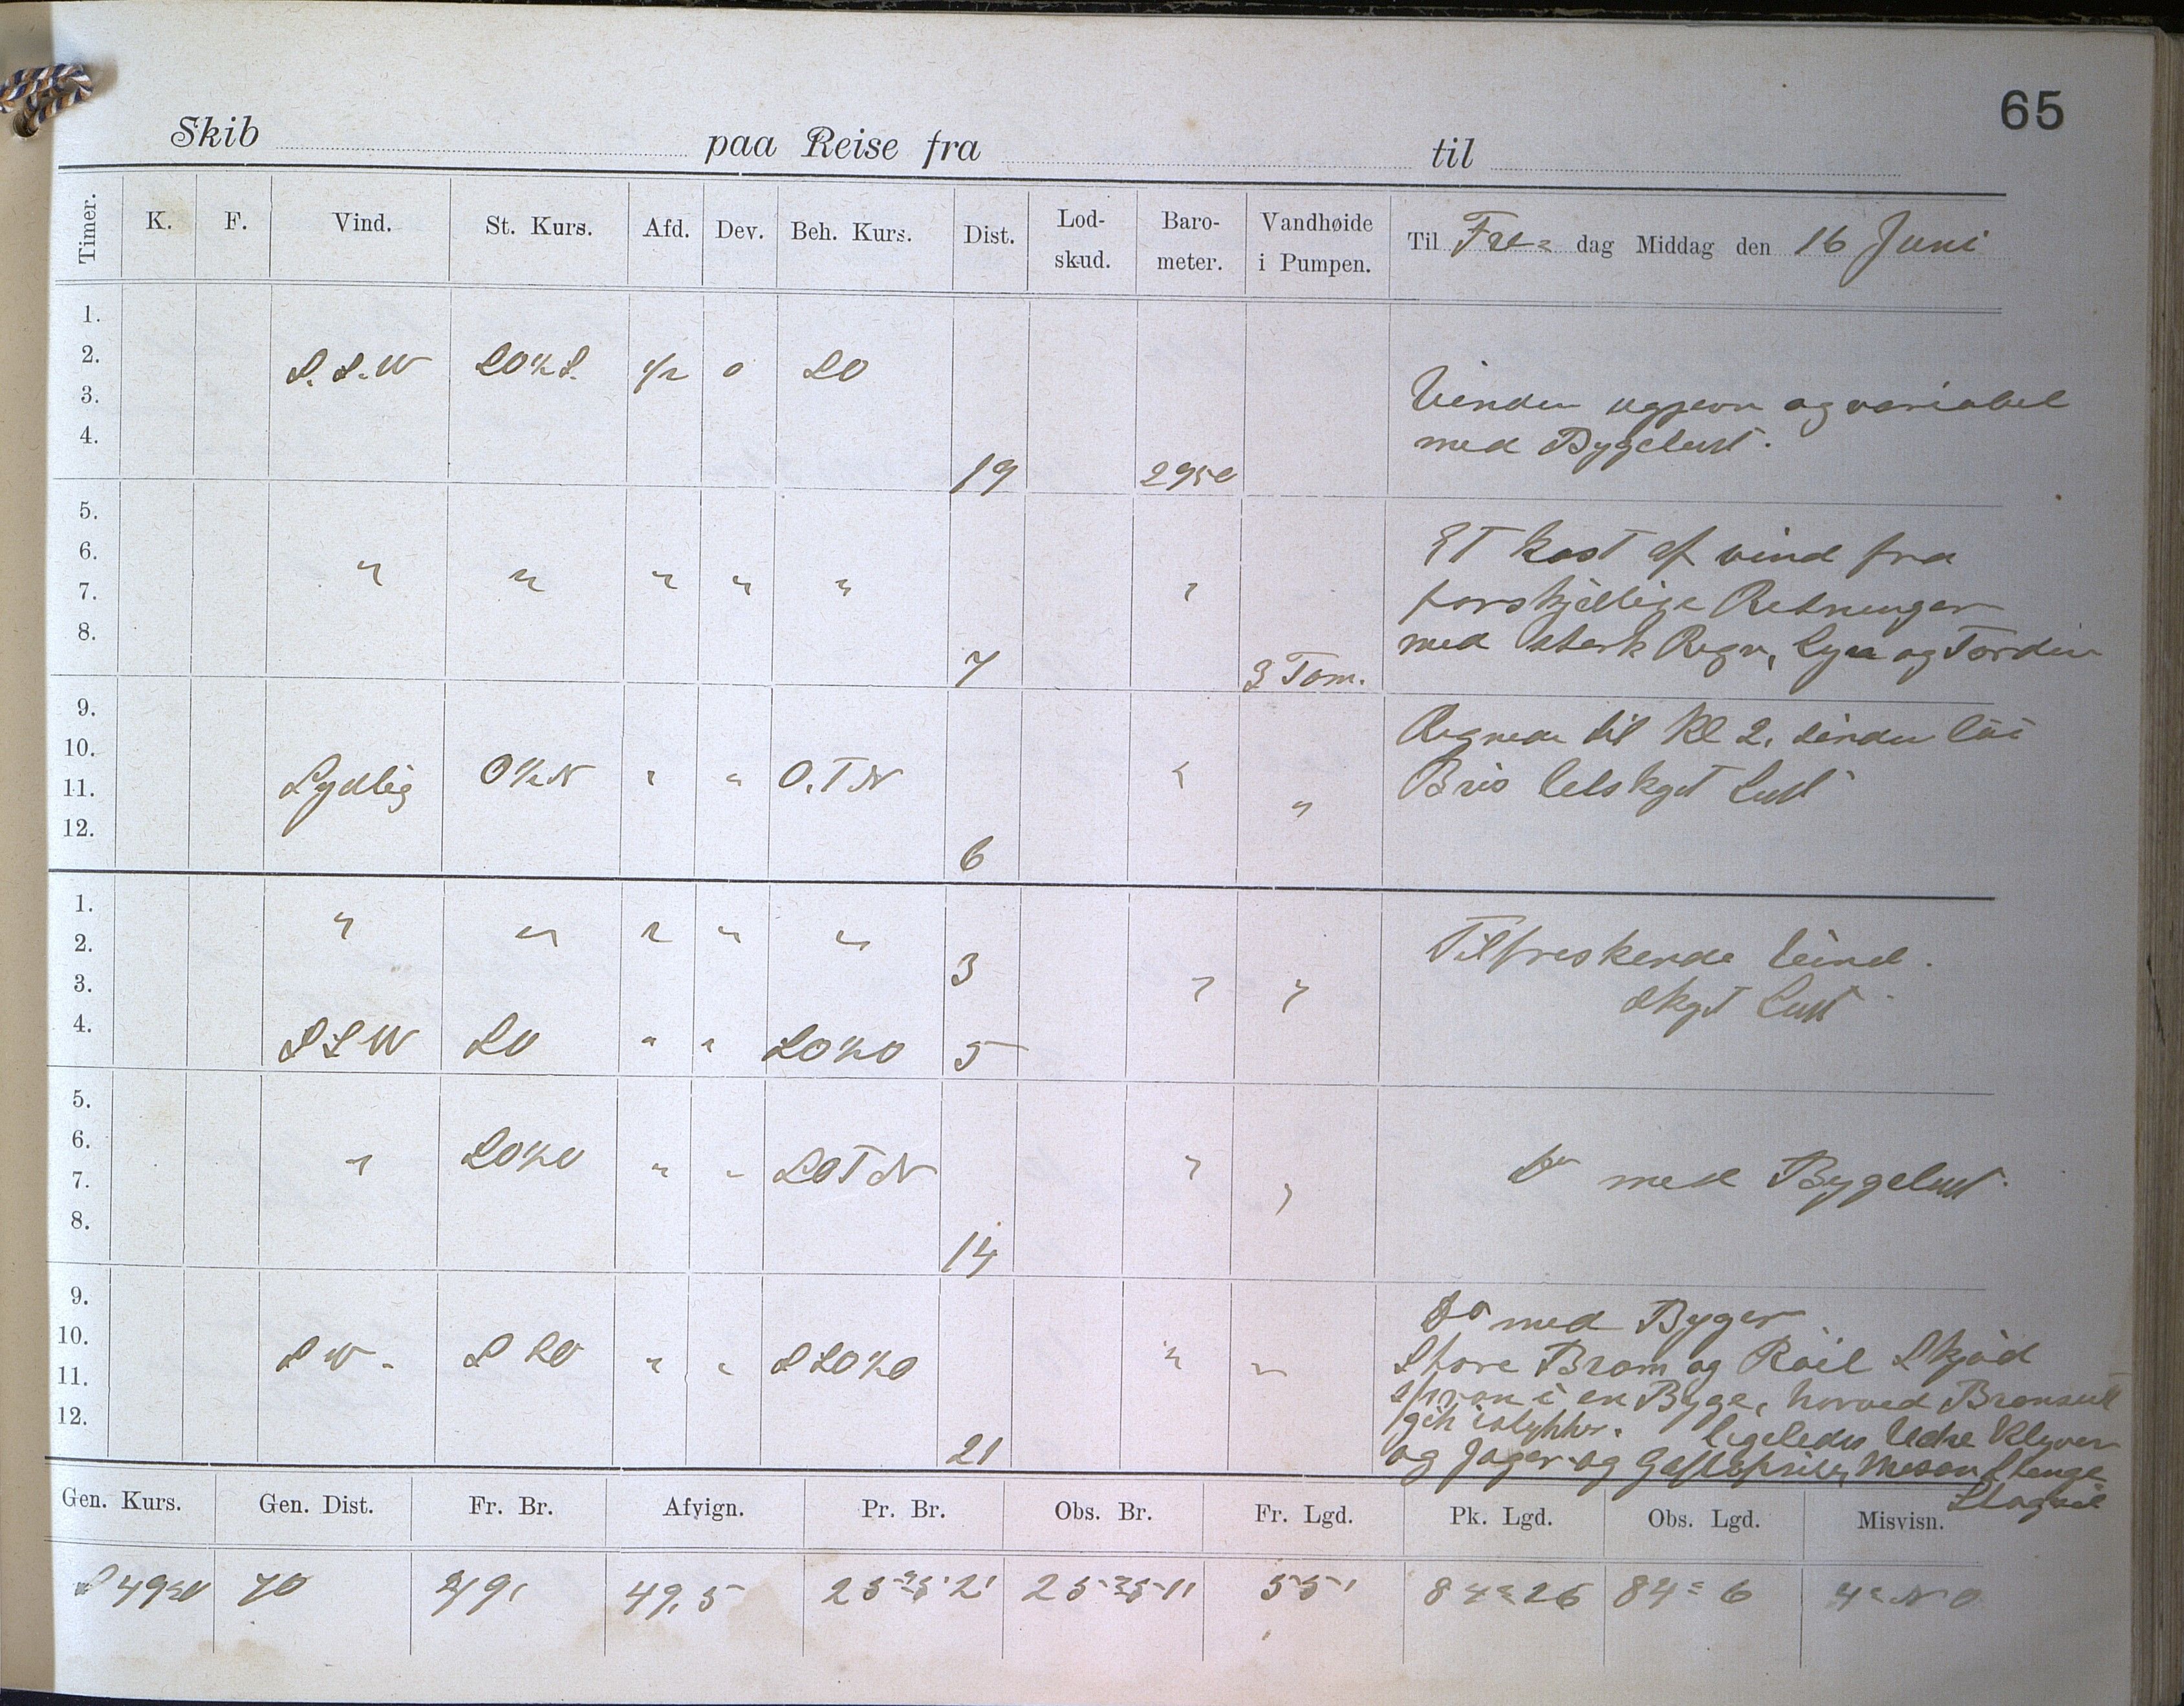 65
Skib paa Reise fra til
Timer. K. F. Vind. St. Kurs. Afd. Dev. Beh. Kurs. Dist. Lod-skud. Baro-meter. Vandhøide i Pumpen. Til Fre= dag Middag den 16 Juni
1.
2. S.S.W SO½S. ½ 0 SO
3. Vinden ugjevn og variabel
4. med Bygeluft.
19 2950
5.
6. " " " " " " Et kast af vind fra
7. forskjellige Retninger
8. med sterk Regn, Lyn og Torden
7 3 Tom.
9. Regnede til Kl 2, siden
10. Sydlig O½N " " O.T N " "
11. Bris Luft
12.
6
1. " " " " "
2. 3 Tilfriskende Vind.
3. " " skyet Luft
4. SSW SO " " SO½O 5
5.
6. " SO½O " " SOTO " "
7. do med Bygeluft.
8.
14
9. do med Byger
10. SW. SSO " " SSO½O " " Store Bram og Røil Skjød
11. spran i en Byge, hvorved Bramseil
12. gik istykker. ligeledes Udre Klyver
21 og Jager og Mesan Stenge
Stagseil
Gen. Kurs. Gen. Dist. Fr. Br. Afvign. Pr. Br. Obs. Br. Fr. Lgd. Pk. Lgd. Obs. Lgd. Misvisn.
70 49,5 55' 84=26 84=6 4=NO